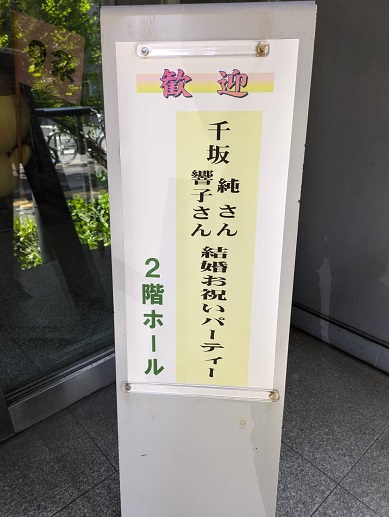 歓迎
千坂 純さん 響子さん 結婚お祝いパーティー
2階ホール